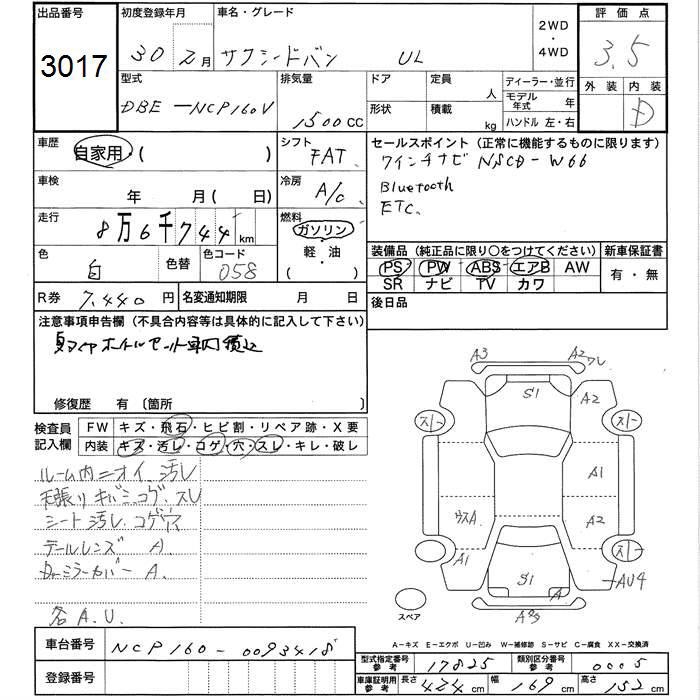 出品番号 3017
初度登録年月 30 2月
車名・グレード サクシードバン UL
2WD・4WD
評価点 3.5
外装 内装 D
型式 DBE-NCP160V
排気量 1500CC
ドア 形状
定員 人
積載 kg
ディーラー・並行
モデル年式 年
ハンドル 左・右
車歴 自家用・( )
シフト FAT
セールスポイント(正常に機能するものに限ります)
ワインチナビ NSCD-W66
Bluetooth
ETC.
車検 年 月( 日)
冷房 A/C
走行 8万6千744km
燃料 ガソリン・軽・油・( )
色 白 色替
色コード 058
装備品(純正品に限り〇をつけてください)
PS PW ABS エアB AW
SR ナビ TV カワ
新車保証書 有・無
R券 7,440円
名変通知期限 月 日
後日品
注意事項申告欄(不具合内容等は具体的に記入して下さい)
ホイルセット車内積込
修復歴 有 〔箇所
検査員記入欄
FW キズ・飛石・ヒビ割・リペア跡・X要
内装 キズ・汚レ・コゲ・穴・スレ・キレ・破レ
ルーム内ニオイ、汚レ
天張りキバミ、コゲ、スレ
シート汚レ、コゲ穴
テールレンズ A.
Drミラーカバー A.
各A.U.
A3 A2 ワレ
S1 A2
スト スト
A1
ウスA A2
A1 スト
S1 A AU4
A3
スペア
A-キズ E-エクボ U-凹み W-補修跡 S-サビ C-腐食 XX-交換済
車台番号 NCP160-0093418
登録番号
型式指定番号参考 17825
類別区分番号参考 0005
車庫証明用参考 長さ 424cm 幅 169cm 高さ 152cm